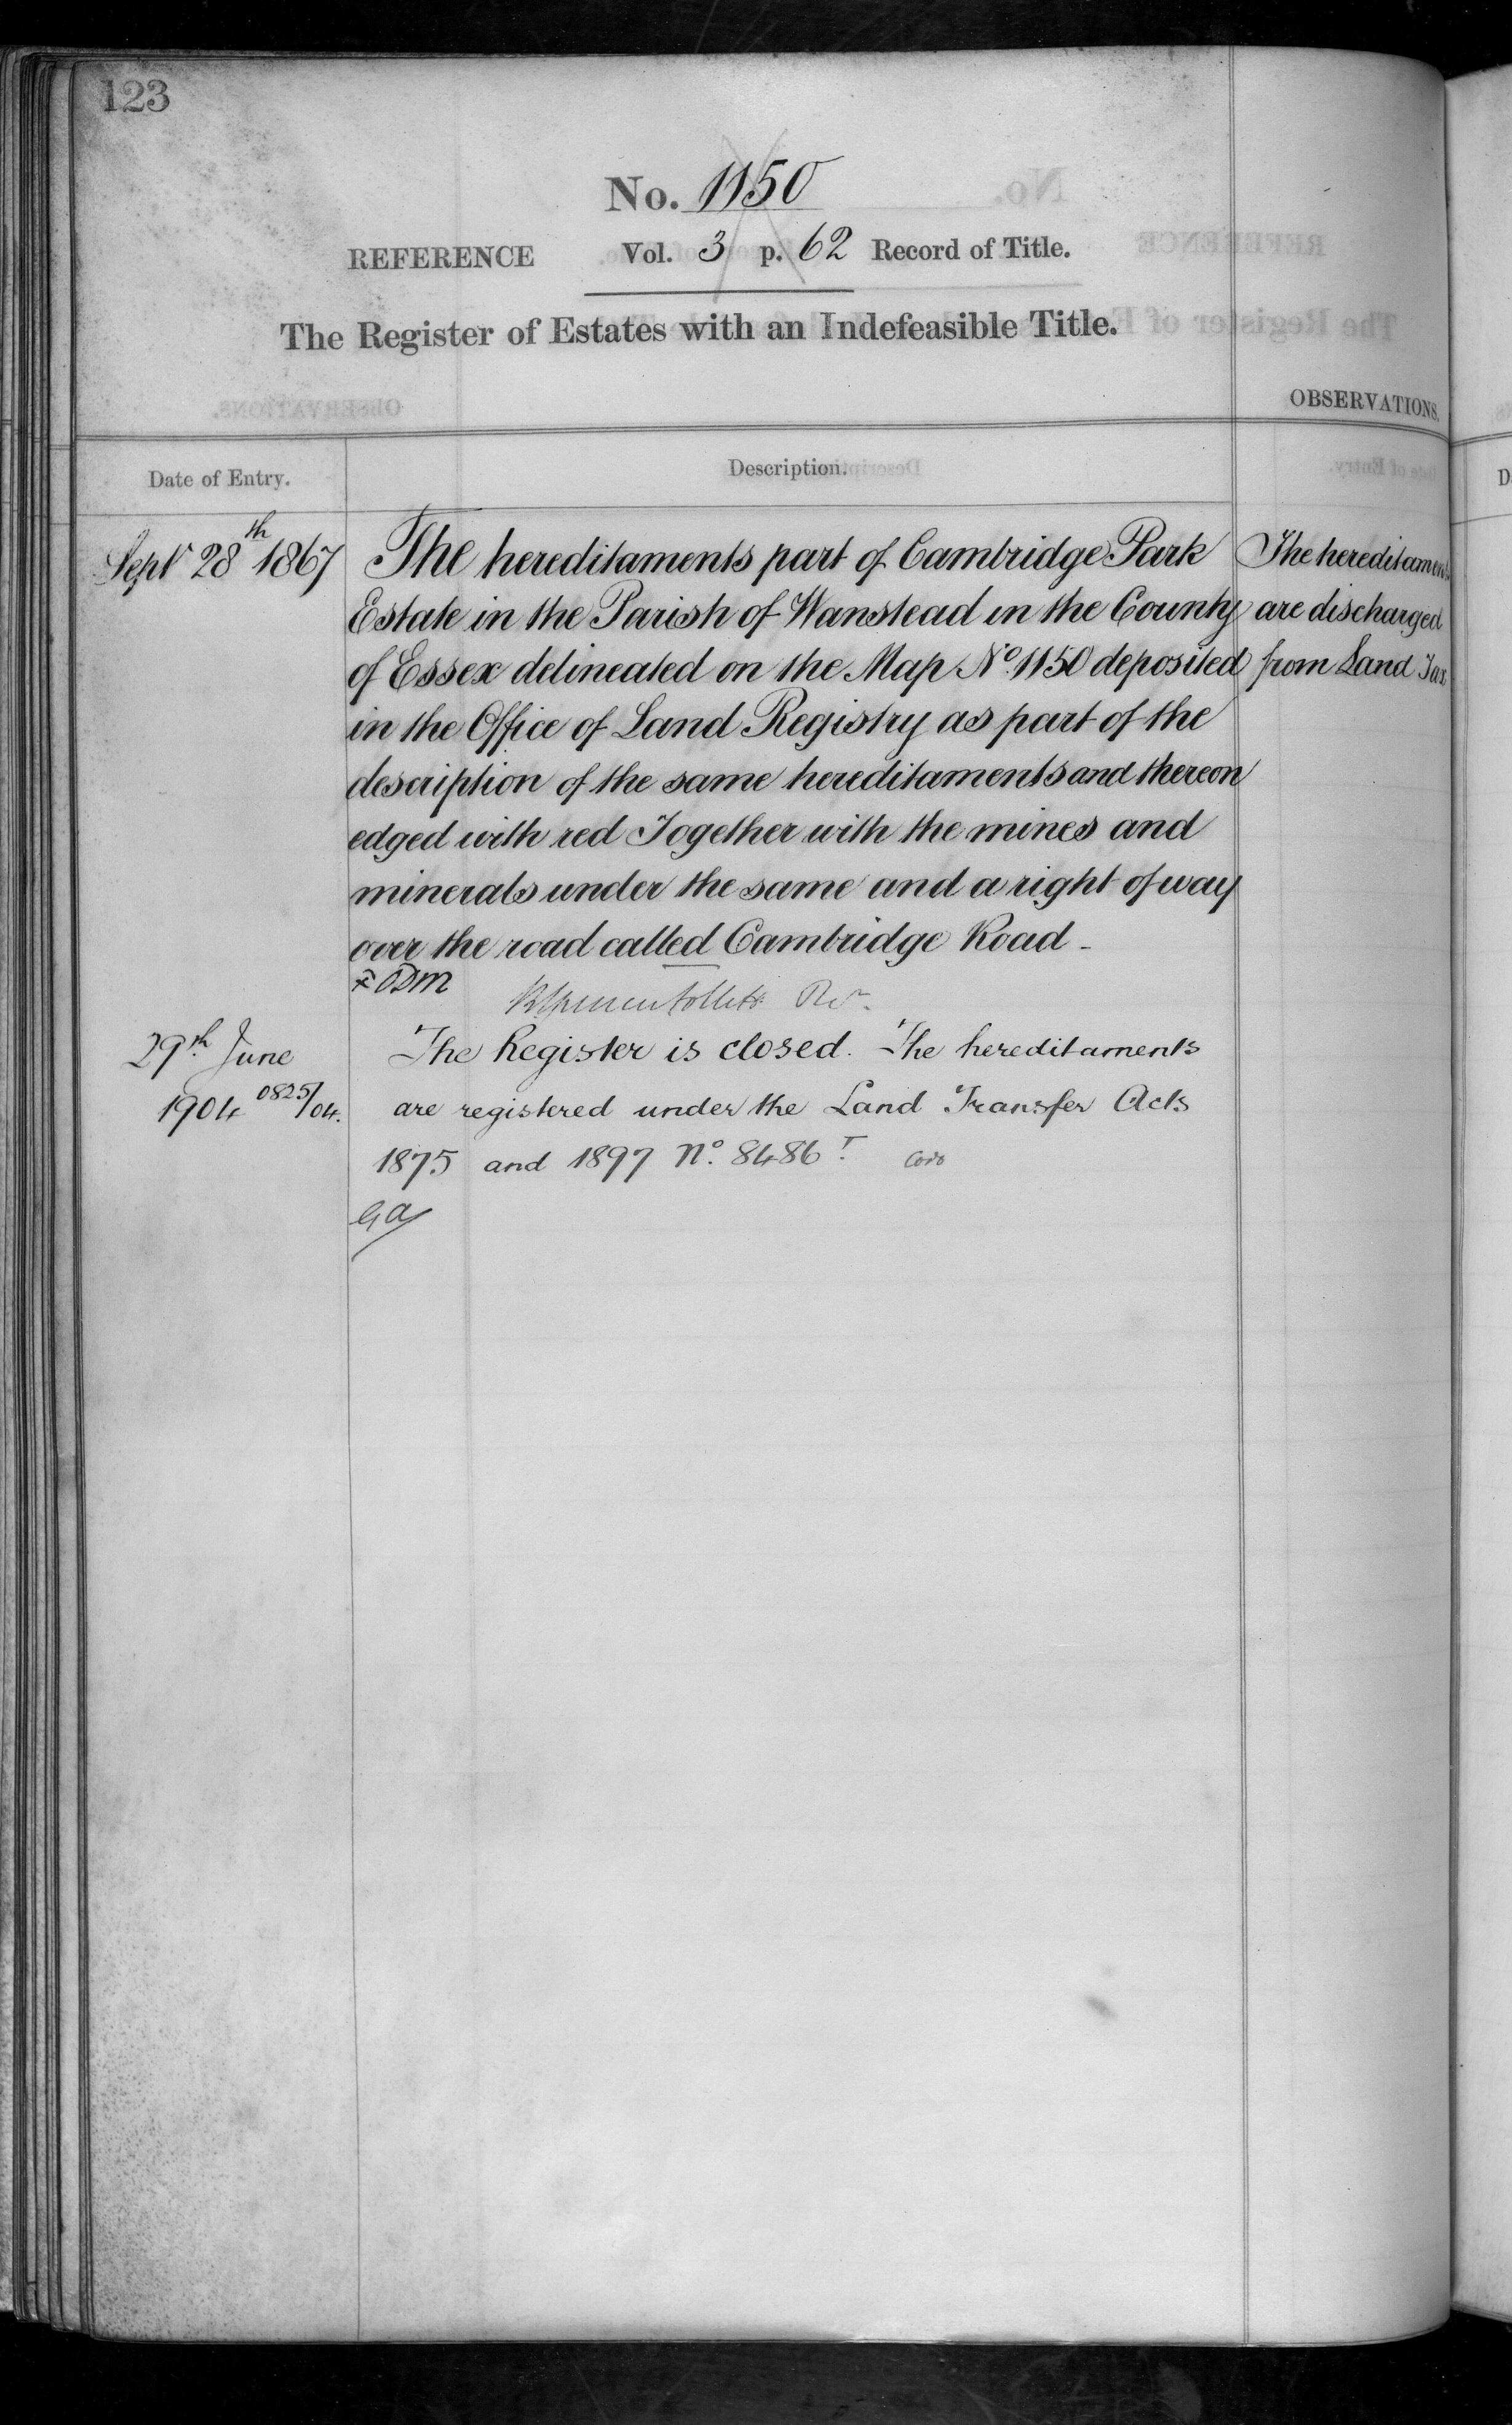 123
No. 1150
REFERENCE Vol. 3 p. 62 Record of Title.
The Register of Estates with an Indefeasible Title.
OBSERVATIONS.
Date of Entry.
Description.
Sept 28th 1867
The hereditaments part of Cambridge Park
Estate in the Parish of Wanstead in the County
of Essex delineated on the Map No. 1150 deposited
in the Office of Land Registry as part of the
description of the same hereditaments and thereon
edged with red Together with the mines and
minerals under the same and a right of way
over the road called Cambridge Road -
The hereditaments
are discharged
from Land Tax
29th June
1904 0825/04.
The Register is closed. The hereditaments
are registered under the Land Transfer Acts
1875 and 1897 No. 8486 T.